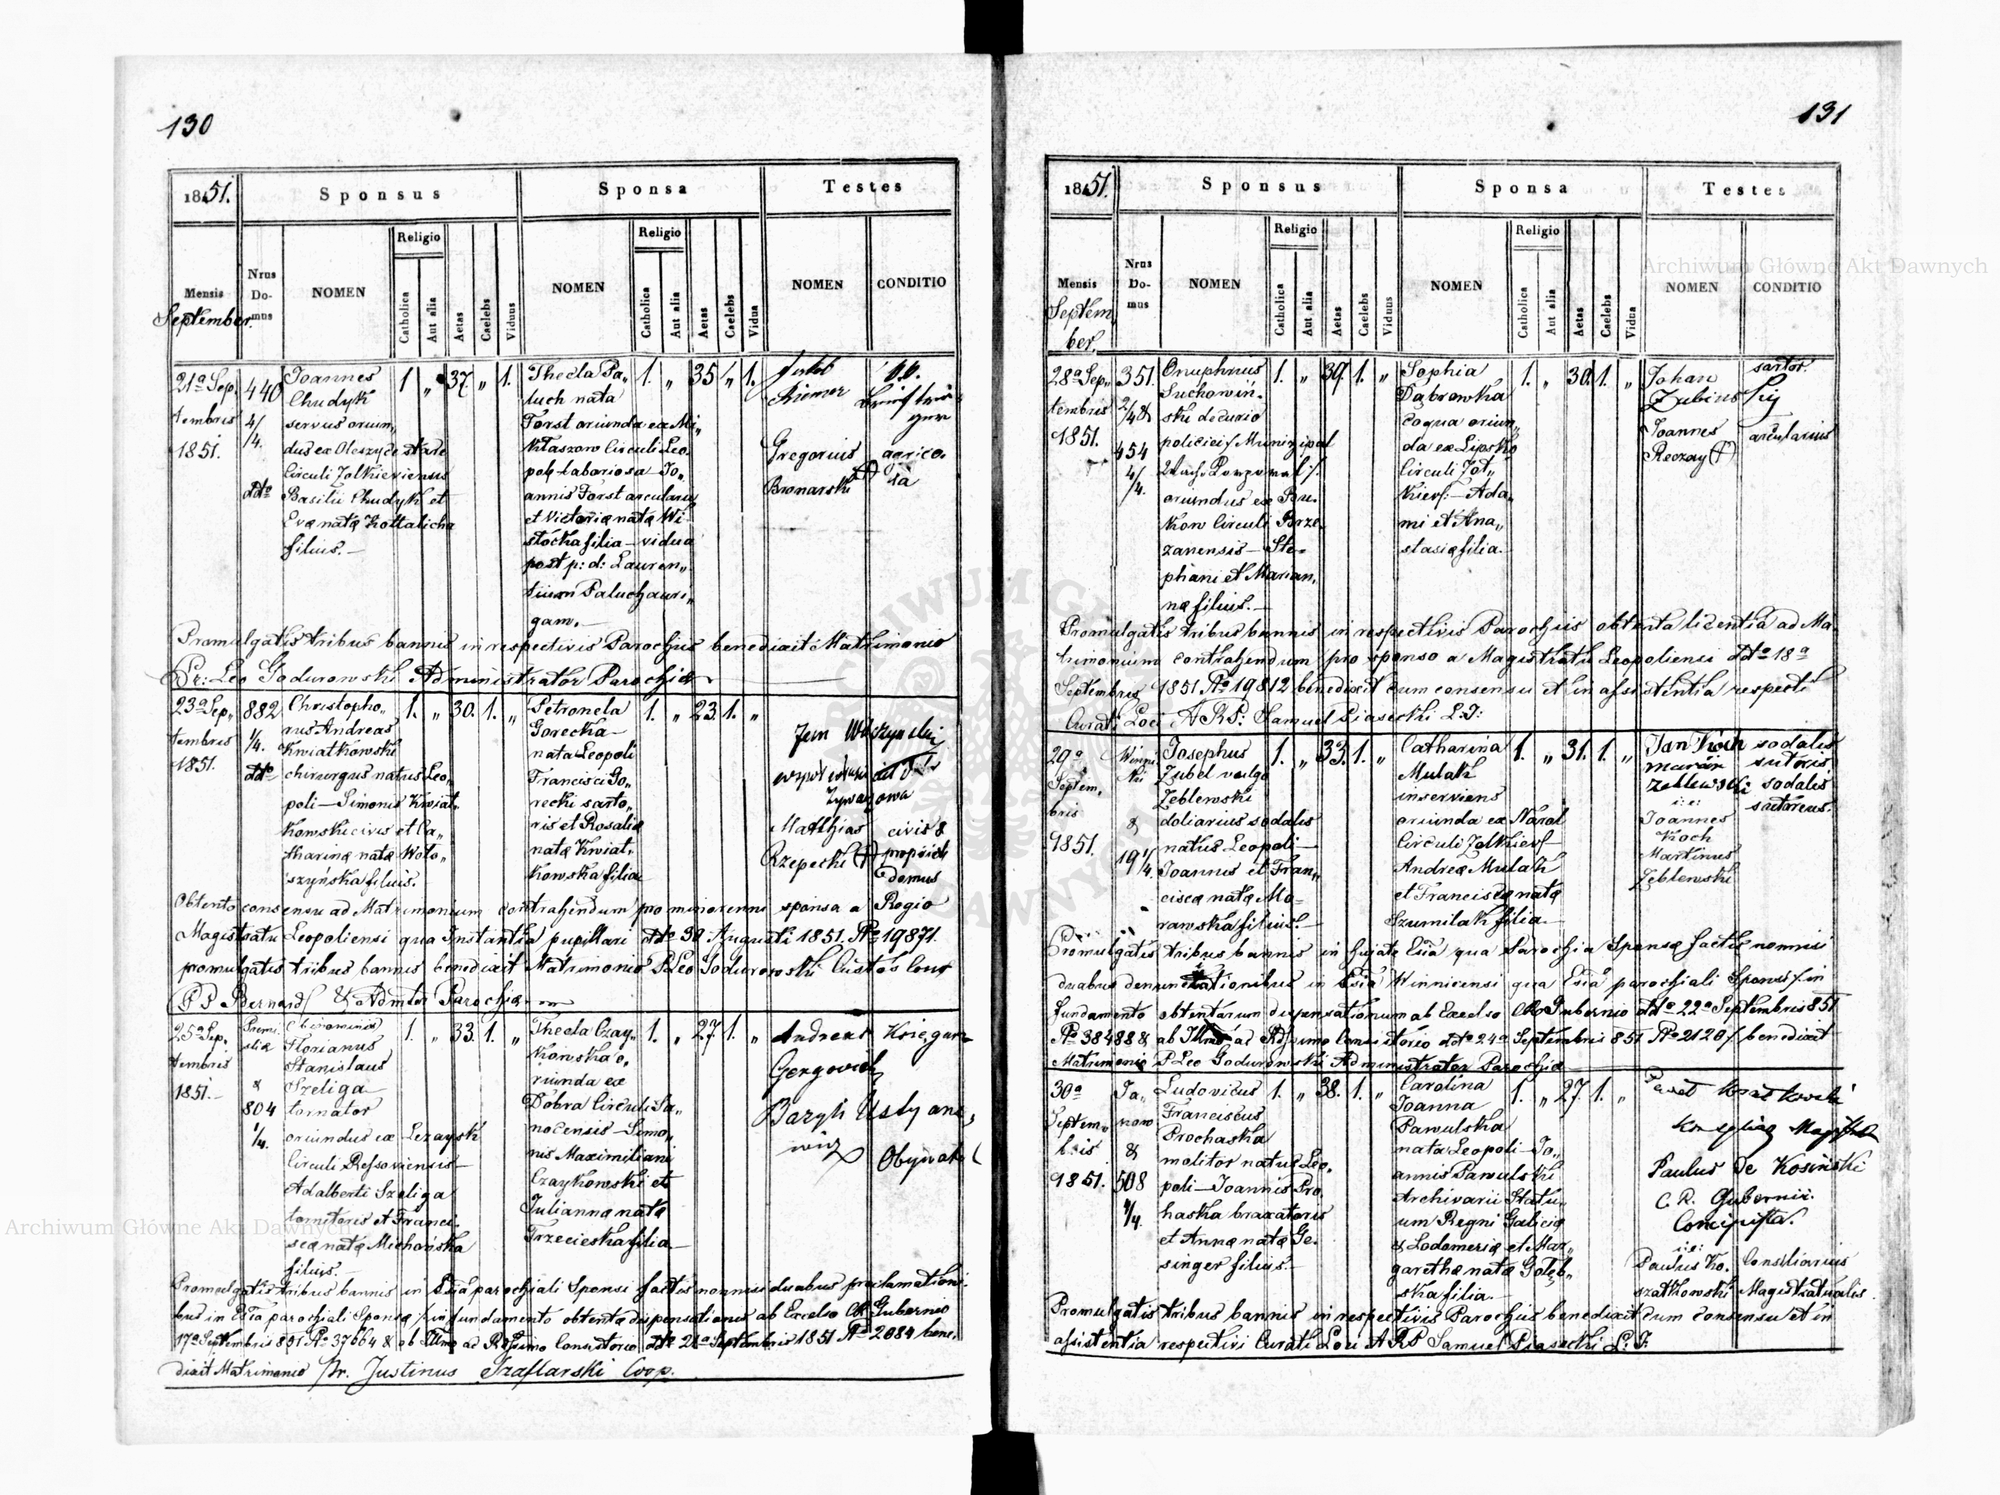 130
1851.
Sponsus
Sponsa
Testes
Mensis
September.
Nrus
Do-
mus
NOMEN
Religio
Catholica
Aut alia
Aetas
Caelebs
Viduus
NOMEN
Religio
Catholica
Aut alia
Aetas
Caelebs
Vidua
NOMEN
CONDITIO
21a Sep.
tembris
1851.
440
4/
4.
ddo
Joannes
Chudyk
servus oriun„
dus ex Oleszyce stare
Circuli Zolkieviensis
Basilii Chudyk et
Eva nata
filius.—
1
„
37.
„
1.
Thecla Pa„
luch nata
Forst oriunda ex Mi„
klaszow Circuli Leo„
pol: laboriosa Jo„
annis Forst arcularii
et Victoria nata Wi„
stocka filia — vidua
post p: d: Lauren„
tium Paluch auri„
gam.—
1.
„
35
„
1.
Jakob
Riemer
Gregorius
Bronarski (+)
agrico„
la
Promulgatis tribus bannis in respectivis Parochiis benedixit Matrimonio
Fr: Leo Godurowski Administrator Parochiæ
23a Sep„
tembris
1851.
882
1/4.
ddo
Christopho„
rus Andreas
Kwiatkowski
chirurgus natus Leo„
poli — Simonis Kwiat„
kowski civis et Ca„
tharina nata Woło„
szyńska filius.
1.
„
30.
1.
„
Petronela
Gorecka
nata Leopoli
Francisci Go„
recki sarto„
ris et Rosalia
nata Kwiat„
kowska filia
1.
„
23.
1.
„
Matthias
Rzepecki (+)
civis &
domus
Obtento consensu ad Matrimonium contrahendum pro minorenni sponsa a Regio
Magistratu Leopoliensi qua Instantia pupillari ddo 30 Augusti 1851. No 19871.
promulgatis tribus bannis benedixit Matrimonio P Leo Godurowski Custos Conv
P P Bernard & Admtor Parochiæ
25a Sep„
tembris
1851.—
&
804
1/4.
Florianus
Stanislaus
Szeliga
tornator
oriundus ex Lezaysk
Circuli Rzesoviensis
Adalberti Szeliga
tornitoris et Franci„
sca nata Michońska
filius.—
1.
„
33.
1.
„
Thecla Czay„
kowska o„
riunda ex
Dobra Circuli Sa„
nocensis — Simo„
nis Maximiliani
Czaykowski et
Julianna nata
Trzecieska filia
1.
„
27.
1.
„
Andreas
Bazyli Ustyano„
wicz
Promulgatis tribus bannis in Esia parochiali Sponsi factis nonnisi duabus proclamationi„
bus in Esia parochiali Sponsa / in fundamento obtenta dispensationis ab Excelso CR Gubernio
17a Septembris 851 No 37664 & ab Illmo ac Rssimo Consistorio ddo 24a Septembris 1851 No 2084 bene„
dixit Matrimonio Fr. Justinus Szaflarski Coop.
131
1851.
Sponsus
Sponsa
Testes
Mensis
Septem
ber.
Nrus
Do-
mus
NOMEN
Religio
Catholica
Aut alia
Aetas
Caelebs
Viduus
NOMEN
Religio
Catholica
Aut alia
Aetas
Caelebs
Vidua
NOMEN
CONDITIO
28a Sep„
tembris
1851.
351.
2/4 &
454
4/
4.
Onuphrius
Suchowiń„
ski decurio
policiei / Munizipal
oriundus ex Bu„
kow Circuli Brze„
zanensis — Ste„
phani et Marian„
na filius.—
1.
„
39.
1.
„
Sophia
Dąbrowska
coqua oriun„
da ex Lipsko
Circuli Zol„
kiev: — Ada„
mi et Ana„
stasia filia.
1.
„
30.
1.
„
Johan
Zubius
Joannes
Reczay (+)
sartor.
arcularius
Promulgatis tribus bannis in respectivis Parochiis obtenta licentia ad Ma„
trimonium contrahendum pro sponso a Magistratu Leopoliensi ddo 18a
Septembris 1851 No 19812 benedixit cum consensu et in assistentia respecti
Curati Loci A R P: Samuel Piasecki L. J:
29a
Septem„
bris
1851.
Winni„
ki
&
19 1/4
Josephus
Zubel vulgo
Zeblewski
doliarius sodalis
natus Leopoli —
Joannis et Fran„
cisca nata Mo„
rawska filius.—
1.
„
33.
1.
„
Catharina
Mulak
inserviens
oriunda ex Narol
Circuli Zolkiev
Andrea Mulak
et Francisca nata
Szumilak filia
1.
„
31.
1.
„
Jan Koch
marcin
Zeblewski
i: e:
Joannes
Koch
Martinus
Zeblewski
sodalis
sutoris
sodalis
sutoreus.
Promulgatis tribus bannis in hujate Esia qua Parochia Sponsa factis nonnisi
duabus denunciationibus in Esia Winnicensi qua Esia parochiali Sponsi / in
fundamento obtentarum dispensationum ab Excelso CR Gubernio ddo 22a Septembris 851
No 38488 & ab Illmo ac Rssimo Consistorio ddo 24a Septembris 851 No 2120 / benedixit
Matrimonio P Leo Godurowski Administrator Parochiæ
30a
Septem„
bris
1851.
Ja„
now
&
508
4/4.
Ludovicus
Franciscus
Prochaska
molitor natus Leo„
poli — Joannis Pro„
haska braxatoris
et Anna nata Ge„
singer filius.—
1.
„
38.
1.
„
Carolina
Joanna
Pawulska
nata Leopoli — Jo„
annis Pawulski
Archivarii Statu„
um Regni Galicia
& Lodomeria et Mar„
garetha nata Gołęb„
ska filia
1.
„
27.
1.
„
Paulus de Kosiński
C. R. Gubernii
Concipista.
i: e:
Paulus Ko„
szatkowski
Consiliarius
Magistratualis.
Promulgatis tribus bannis in respectivis Parochiis benedixit cum consensu et in
assistentia respectivi Curati Loci A R P Samuel Piasecki L: J:
Archiwum Główne Akt Dawnych
Archiwum Główne Akt Dawnych